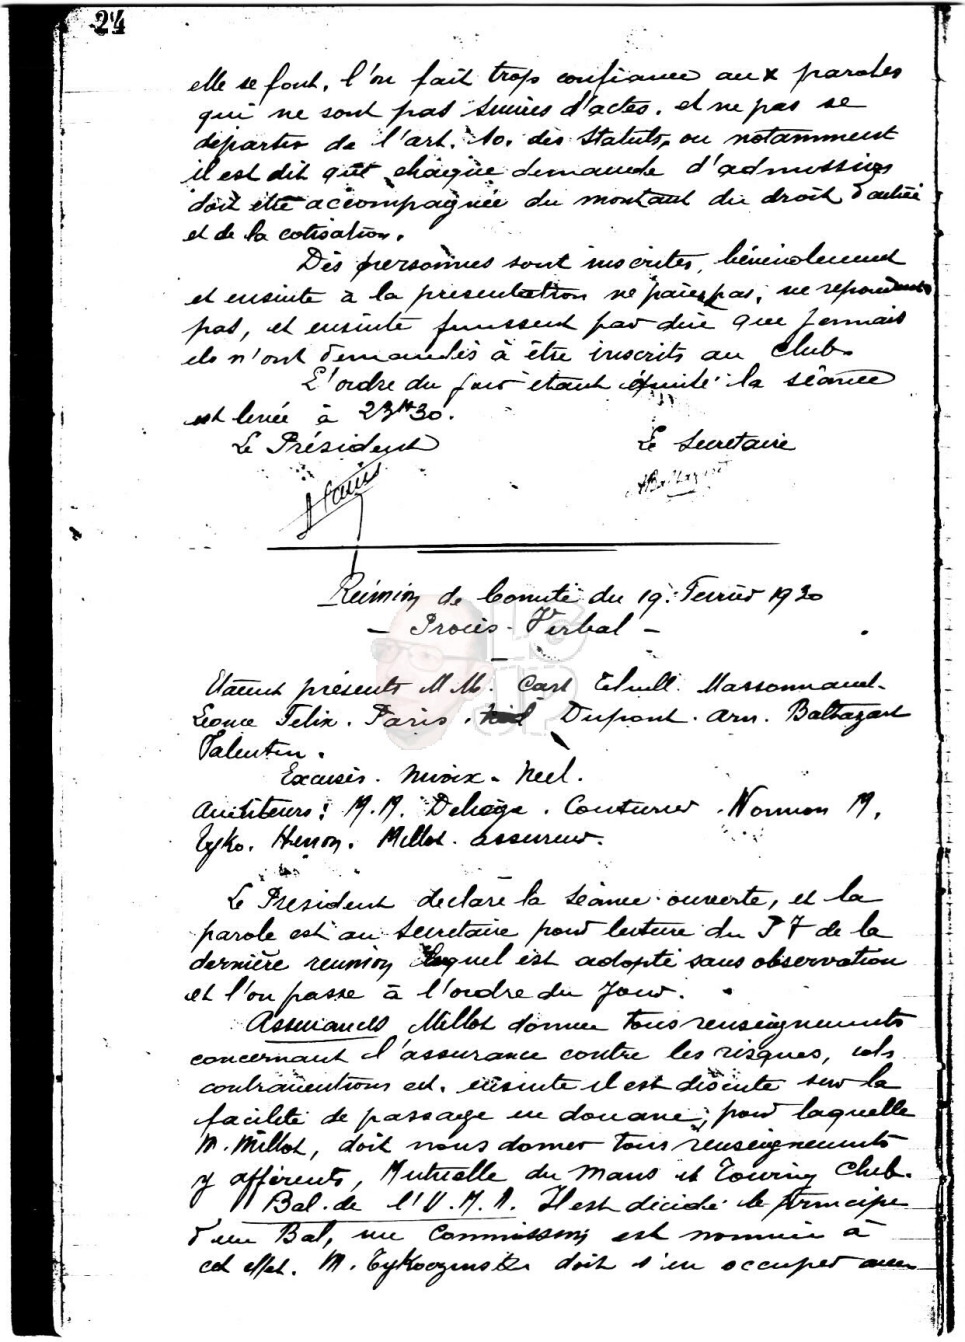 24
elle se font, l'on fait trop confiance aux paroles
qui ne sont pas suivies d'actes. et ne pas se
départir de l'art. 10. des statuts, ou notamment
il est dit que chaque demande d'admission
doit être accompagnée du montant du droit d'entrée
et de la cotisation.
Des personnes sont inscrites, bénévolement
et ensuite à la presentation ne paient pas, ne repondent
pas, et ensuite finissent par dire que Jamais
ils n'ont demandés à être inscrits au Club.
L'ordre du jour étant épuisé la séance
est levée à 23H30.
Le Président Le Secretaire
Paris ABaltazart
Réunion de Comité du 19. Fevrier 1930
- Procès-Verbal -
Etaient présents M M. Cart Massonnaud.
Leonce Felix. Paris. Dupont. Arn. Baltazart
Valentin.
Excusés. Miroix. Neel.
Auditeurs: M.M. Deliège. Couturier. Normon M.
Tyko. Husson. Millot. assureur.
Le President declare la séance ouverte, et la
parole est au Secretaire pour lecture du P V de la
dernière reunion lequel est adopté sans observation
et l'on passe à l'ordre du Jour.
Assurances Millot donne tous renseignements
concernant l'assurance contre les risques, vols
contraventions ect. ensuite il est discuté sur la
facilité de passage en douane, pour laquelle
M. Millot, doit nous donner tous renseignements
y afférents, Mutuelle du Mans et Touring Club.
Bal. de l'U.M.A. Il est décidé le principe
d'un Bal, une Commission est nommée à
cet effet. M. Tykoczinski doit s'en occuper avec